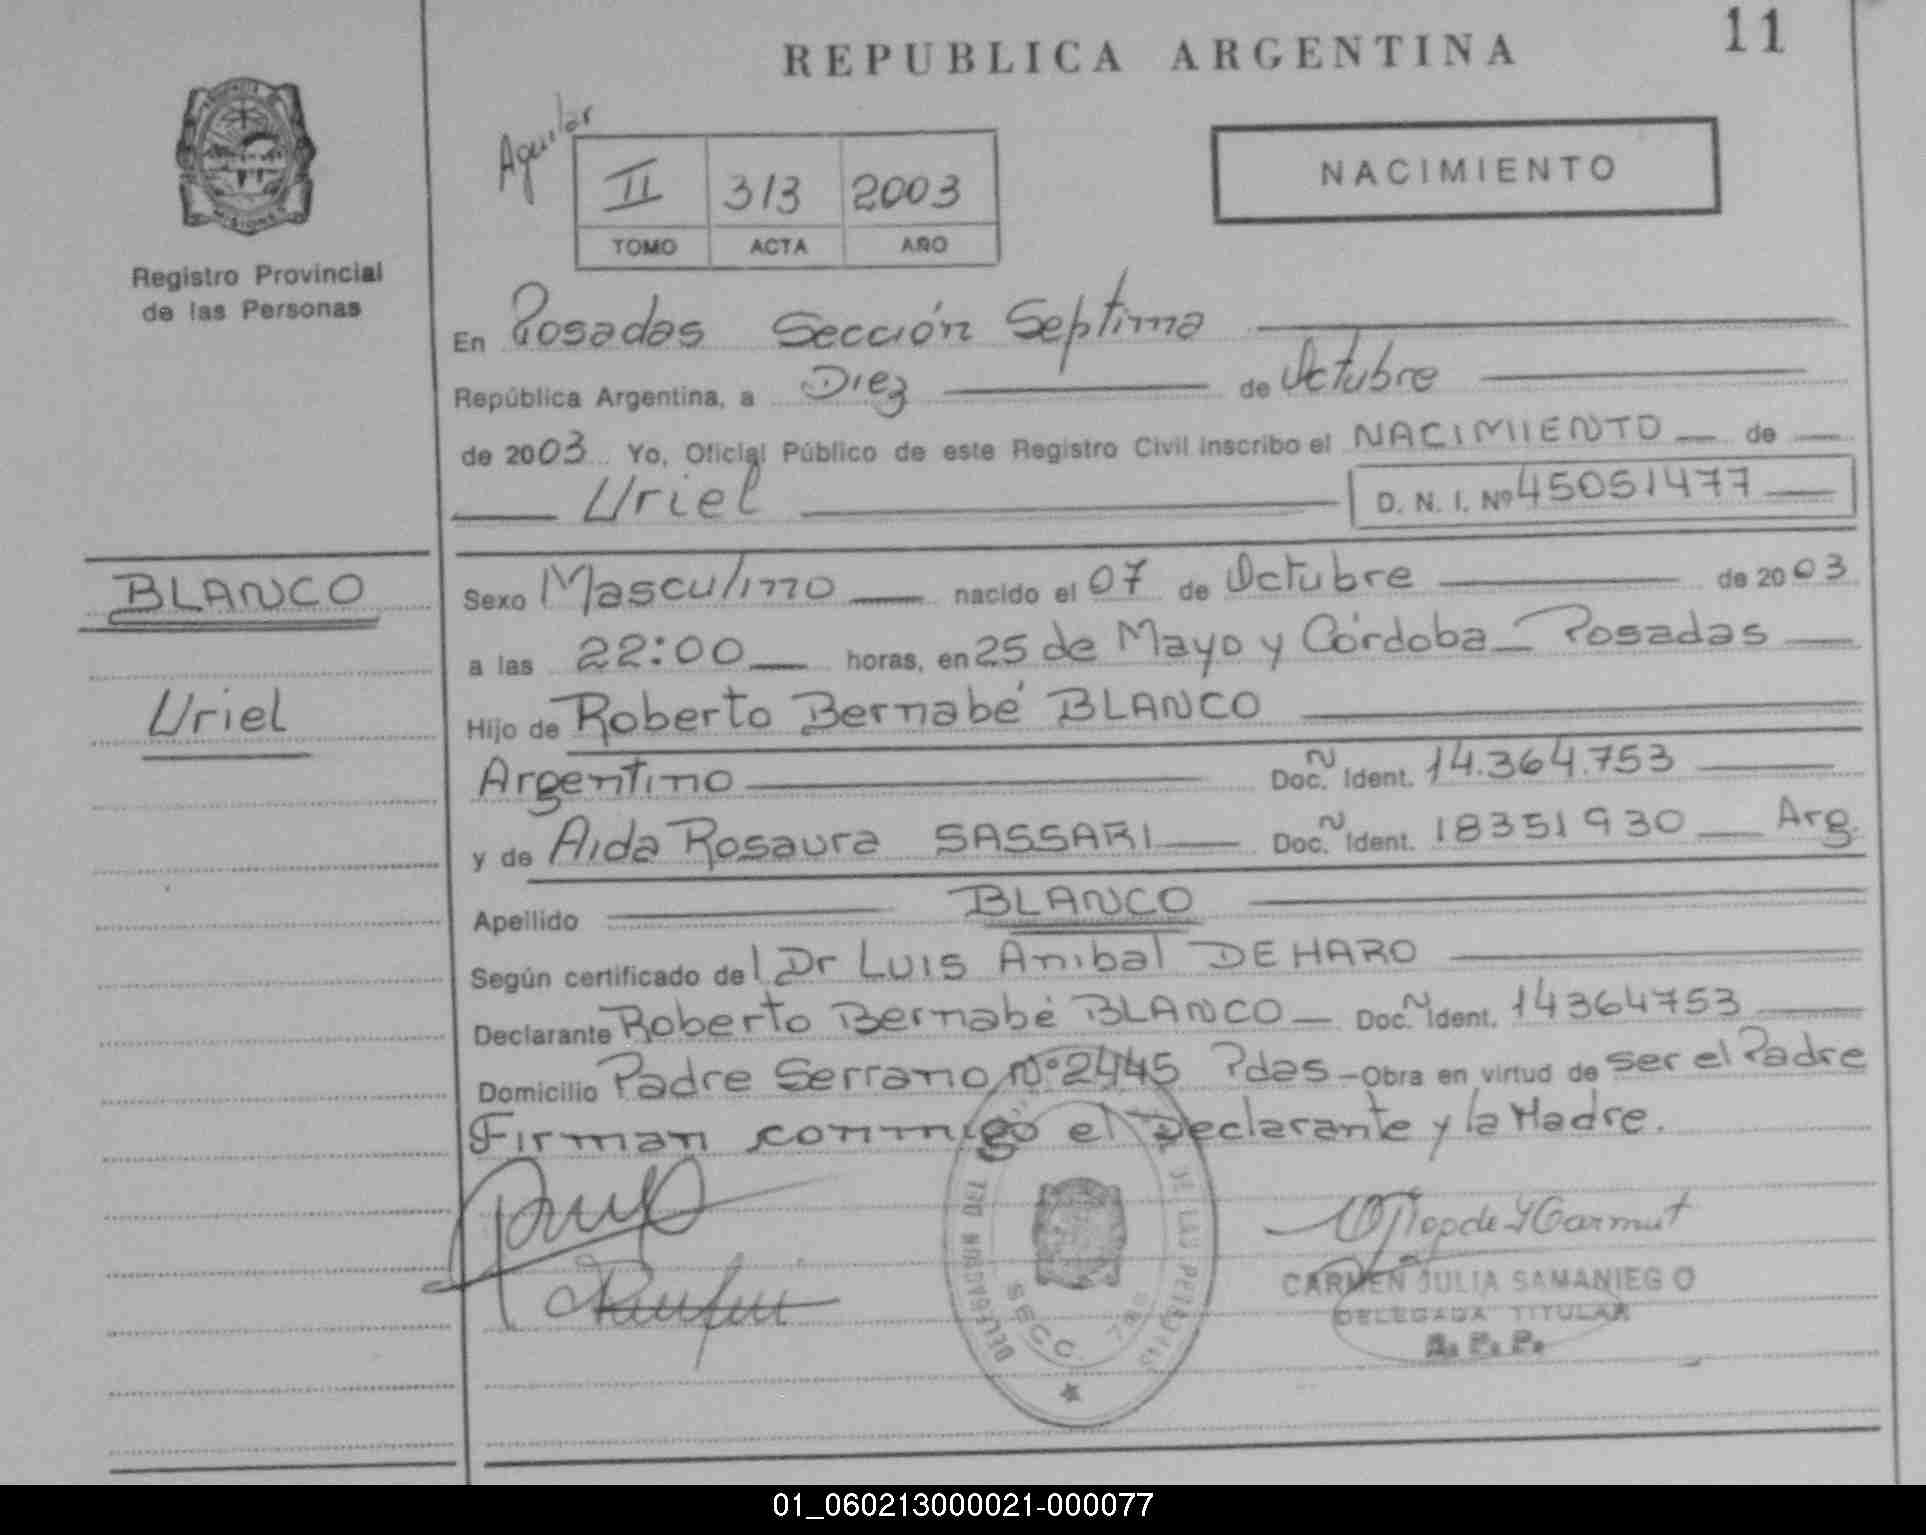 REPUBLICA ARGENTINA
11
Aguilar
II 313 2003
TOMO ACTA AÑO
NACIMIENTO
MISIONES
Registro Provincial
de las Personas
En Posadas Sección Septima
República Argentina, a Diez de Octubre
de 2003 Yo, Oficial Público de este Registro Civil inscribo el NACIMIENTO de
Uriel D. N. I. Nº 45051477
BLANCO
Uriel
Sexo Masculino nacido el 07 de Octubre de 2003
a las 22:00 horas, en 25 de Mayo y Córdoba - Posadas
Hijo de Roberto Bernabé BLANCO
Argentino Doc. Ident. 14.364.753
y de Aida Rosaura SASSARI Doc. Ident. 18351930 Arg.
Apellido BLANCO
Según certificado del Dr Luis Anibal DEHARO
Declarante Roberto Bernabé BLANCO Doc. Ident. 14364753
Domicilio Padre Serrano Nº 2445 Pdas - Obra en virtud de ser el Padre
Firman conmigo el Declarante y la Madre.
DE LAS PERSONAS
SECC. 7ma
CARMEN JULIA SAMANIEGO
DELEGADA TITULAR
R. P. P.
01_060213000021-000077